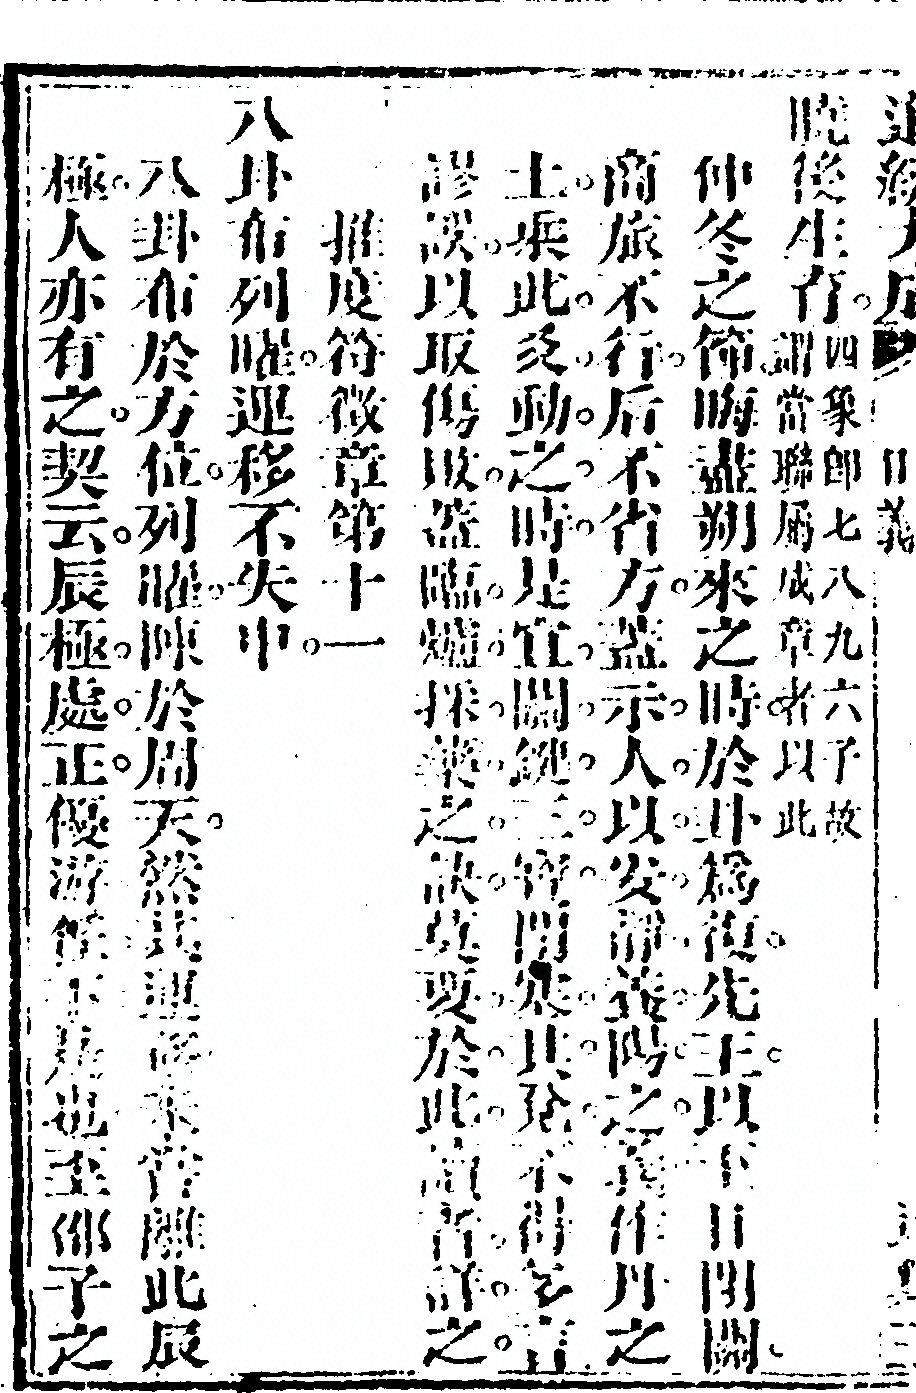 曉後生育四象卽七八九六子故
謂當聯屬成章者以此
仲冬之節晦盡朔來之時於卦爲復先王以至日閉關
商旅不行后不省方蓋示人以安靜養陽之義作丹之
士乘此爻動之時是宜關鍵三寶閉塞其兌不得妄言
謬誤以取傷敗蓋臨爐採藥之訣莫要於此讀者詳之
推度符徵章第十一
八卦布列曜運移不失中
八卦布於方位列曜陳於周天然其運移不嘗離此辰
極人亦有之契云辰極處正優游任下是也至邵子之